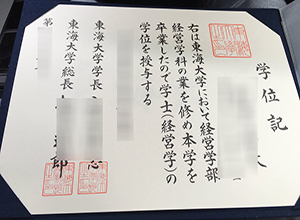 学位記
右は東海大学において経営学部
経営学科の業を修め本学を
卒業したので学士(経営学)の
学位を授与する
東海大学学長
東海大学総長
郎
第